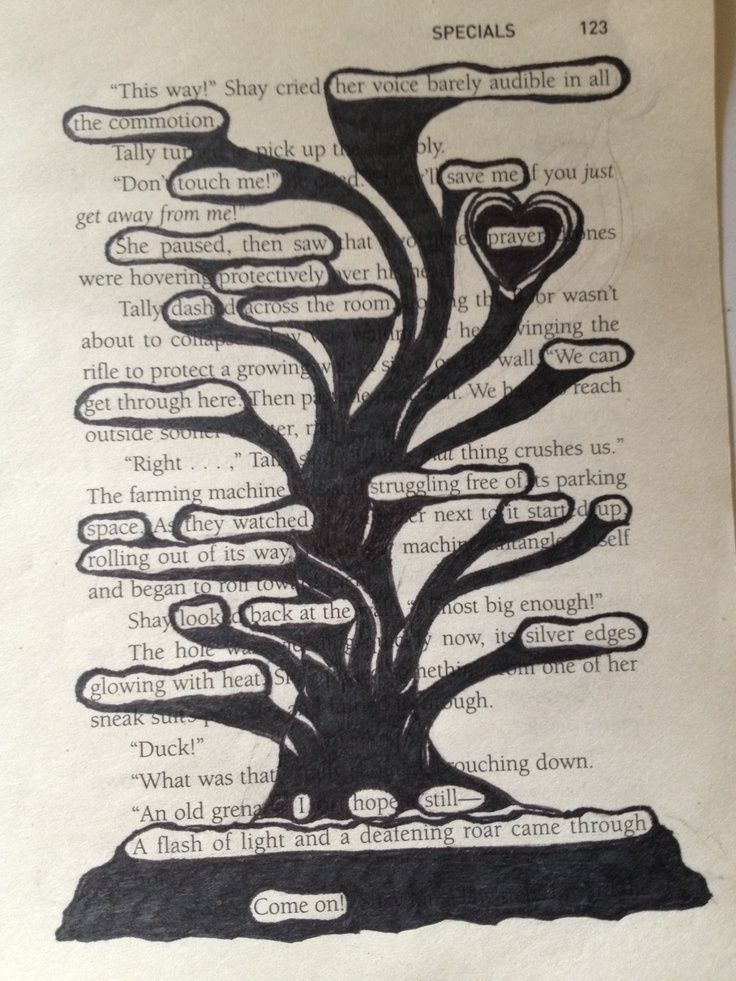 SPECIALS 123
"This way!" Shay cried her voice barely audible in all
the commotion.
Tally pick up
"Don't touch me!" save me if you just
get away from me!"
She paused, then saw that prayer
were hovering protectively over
Tally dash across the room or wasn't
about to swinging the
rifle to protect a growing wall. "We can
get through here. Then We reach
outside sooner
"Right . . . ," thing crushes us."
The farming machine struggling free of its parking
space. As they watched, next to it started up,
rolling out of its way.
and began to roll
Shay look back at the big enough!"
The hole now, its silver edges
glowing with heat. from one of her
sneak
"Duck!"
"What was that crouching down.
"An old I hope still—
A flash of light and a deafening roar came through
Come on!